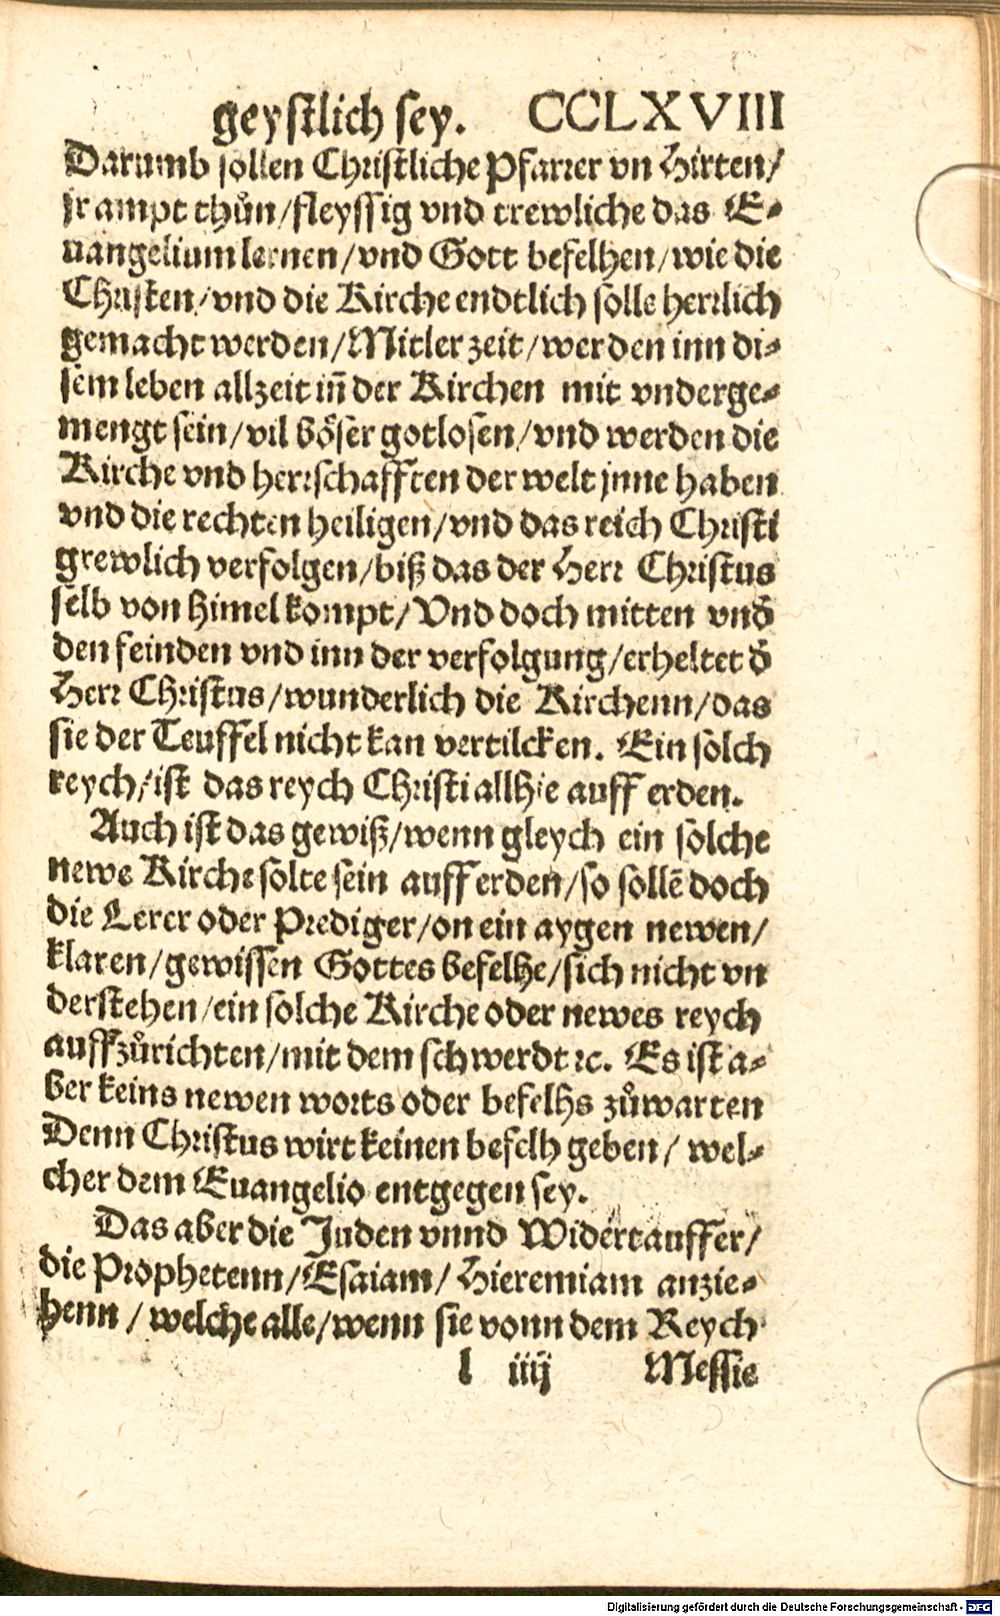 geystlich sey. CCLXVIII
Darumb sollen Christliche Pfarrer vn Hirten/
jr ampt thůn/fleyssig vnd trewliche das E-
uangelium lernen/vnd Gott befelhen/wie die
Christen/vnd die Kirche endtlich solle herrlich
gemacht werden/Mitler zeit/werden inn di-
sem leben allzeit iñ der Kirchen mit vnderge-
mengt sein/vil böser gotlosen/vnd werden die
Kirche vnd herrschafften der welt jnne haben
vnd die rechten heiligen/vnd das reich Christi
grewlich verfolgen/biß das der Herr Christus
selb von himel kompt/Vnd doch mitten vnđ
den feinden vnd inn der verfolgung/erheltet đ
Herr Christus/wunderlich die Kirchenn/das
sie der Teuffel nicht kan vertilcken. Ein solch
reych/ist das reych Christi allhie auff erden.
Auch ist das gewiß/wenn gleych ein solche
newe Kirche solte sein auff erden/so sollẽ doch
die Lerer oder Prediger/on ein aygen newen/
klaren/gewissen Gottes befelhe/sich nicht vn
derstehen/ein solche Kirche oder newes reych
auffzůrichten/mit dem schwerdt ꝛc. Es ist a-
ber keins newen worts oder befelhs zůwarten
Denn Christus wirt keinen befelh geben/ wel-
cher dem Euangelio entgegen sey.
Das aber die Juden vnnd Widertauffer/
die Prophetenn/Esaiam/Hieremiam anzie-
henn/welche alle/wenn sie vonn dem Reych
l iiij Messie
Digitalisierung gefördert durch die Deutsche Forschungsgemeinschaft - DFG